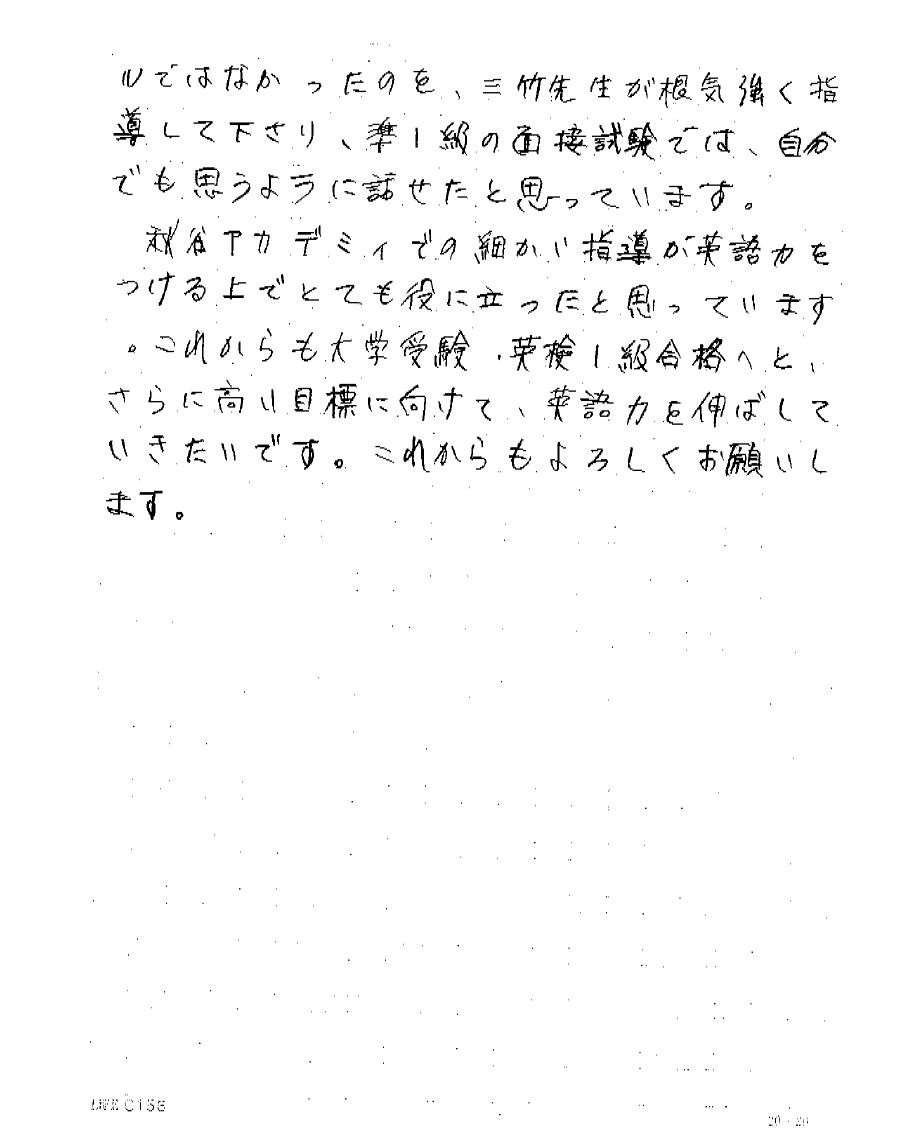 ルではなかったのを、三竹先生が根気強く指
導して下さり、準1級の面接試験では、自分
でも思うように話せたと思っています。
秋谷アカデミィでの細かい指導が英語力を
つける上でとても役に立ったと思っています
。これからも大学受験・英検1級合格へと、
さらに高い目標に向けて、英語力を伸ばして
いきたいです。これからもよろしくお願いし
ます。
LIFE C155
20 20